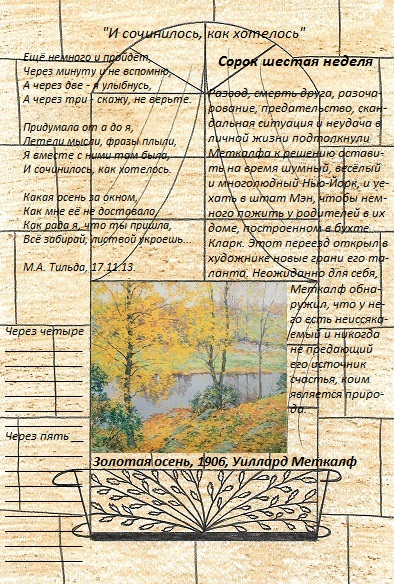 "И сочинилось, как хотелось"
Ещё немного и пройдёт,
Через минуту и не вспомню,
А через две - я улыбнусь,
А через три - скажу, не верьте.
Придумала от а до я,
Летели мысли, фразы плыли,
Я вместе с ними там была,
И сочинилось, как хотелось.
Какая осень за окном,
Как мне её не доставало,
Как рада я, что ты пришла,
Всё забирай, листвой укроешь...
М.А. Тильда, 17.11.13.
Сорок шестая неделя
Развод, смерть друга, разоча-
рование, предательство, скан-
дальная ситуация и неудача в
личной жизни подтолкнули
Меткалфа к решению остави-
ть на время шумный, весёлый
и многолюдный Нью-Йорк, и уе-
хать в штат Мэн, чтобы нем-
ного пожить у родителей в их
доме, построенном в бухте
Кларк. Этот переезд открыл в
художнике новые грани его та-
ланта. Неожиданно для себя,
Меткалф обна-
ружил, что у не-
го есть неиссяка-
емый и никогда
не предающий
его источник
счастья, коим
является приро-
да.
Через четыре
Через пять
Золотая осень, 1906, Уиллард Меткалф